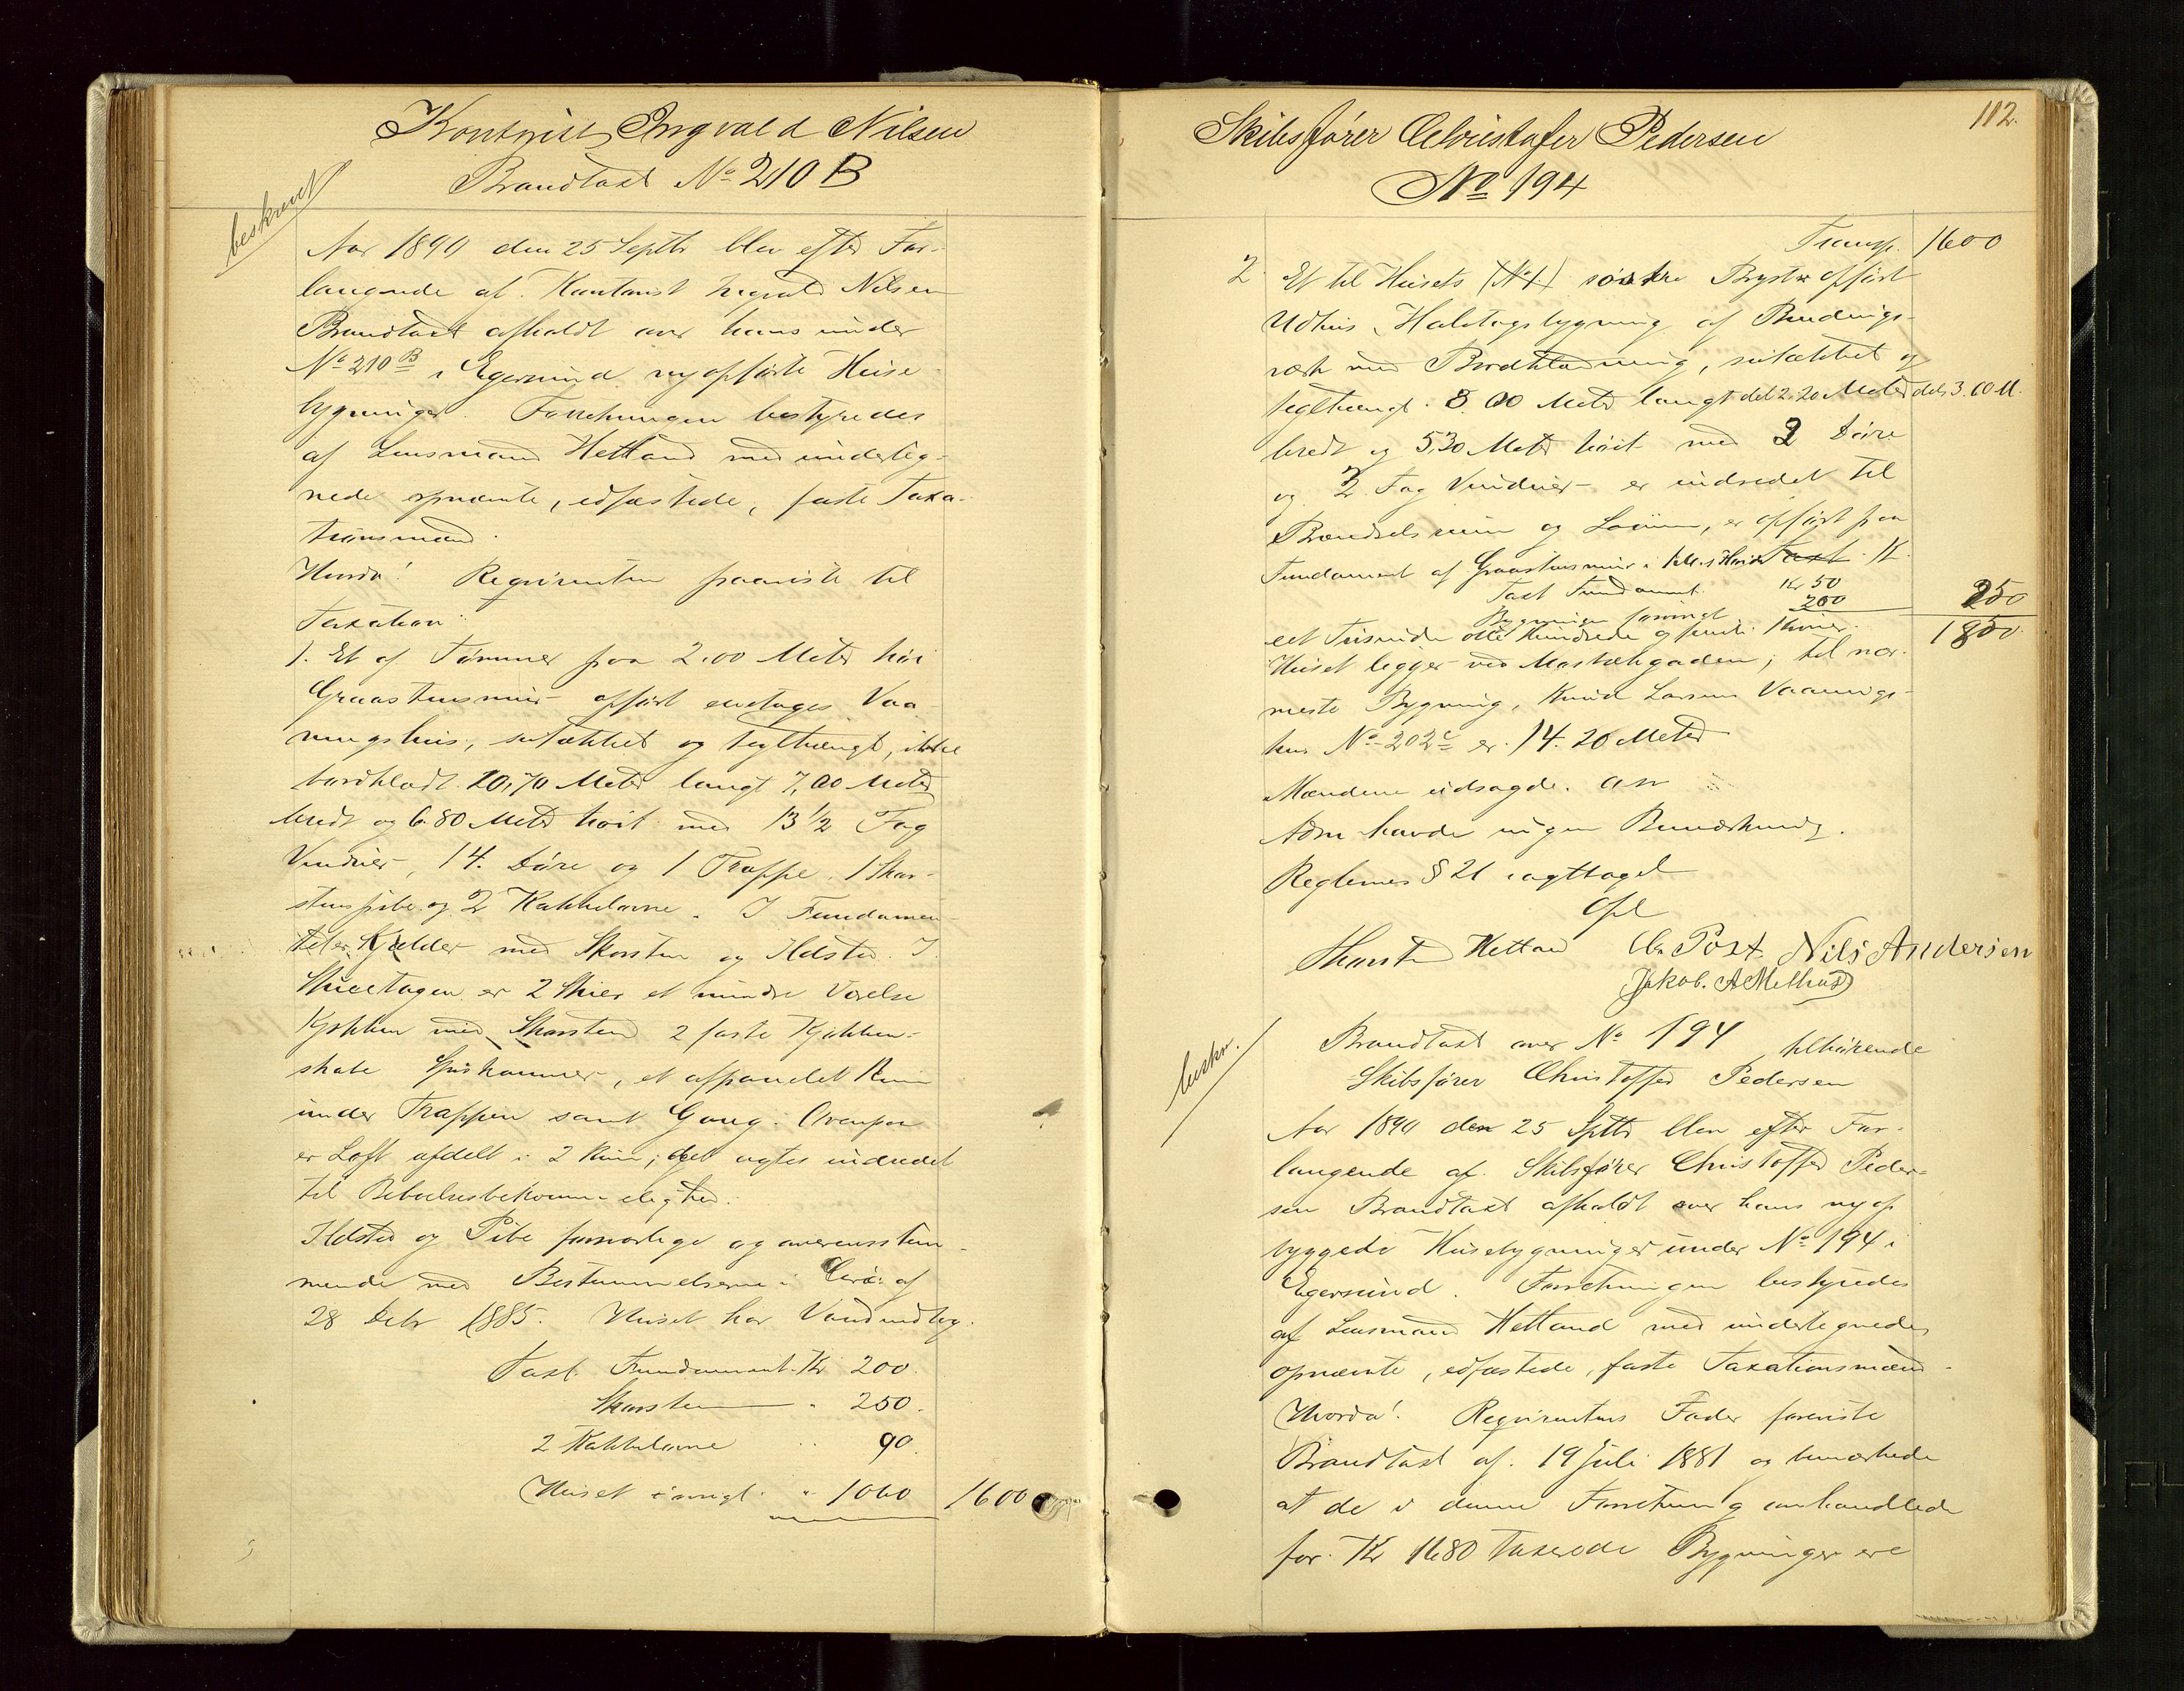 Kontorist Ingvald Nilsen
Brandtaxt No 210 B
beskrevet
Aar 1890 den 25 Septbr blev efter For-
langende af Kontorist Ingvald Nilsen
Brandtaxt afholdt over hans under
No 210 B i Egersund nyopførte Huse-
bygninger. Forretningen bestyredes
af Lensmand Hetland med underteg-
nede opnævnte, edfæstede, faste Taxa-
tionsmænd.
Hvorda! Rekvirenten paaviste til
Taxation:
1. Et af Tømmer paa 2.00 Meter høi
Graastensmur opført enetages Vaa-
ningshus, sutækket og teglhængt, ikke
bordklædt 10,70 Meter langt 7,00 Meter
bredt og 6.80 Meter høit med 13 1/2 Fag
Vinduer, 14. Døre og 1 Trappe, 1 Skor-
stenspibe og 2 Kakkelovne. I Fundamen-
tet er Kjelder med Skorsten og Ildsted. I
Stueetagen er 2 Stuer et mindre Værelse
Kjøkken med Skorsten 2 faste Kjøkken-
skabe Spiskammer, et afpanelet Rum
under Trappen samt Gang. Ovenpaa
er Loft afdelt i 2 Rum; det agtes indredet
til Beboelsesbekvemmelighed.
Ildsted og Pibe forsvarlige og overensstem-
mende med Bestemmelserne i Circ: af
28 Debr 1885. Huset har Vandindlæg.
Taxt Fundament Kr 200.
Skorsten " 250.
2 Kakkelovne " 90.
Huset øvrigt " 1060 1600
112.
Skibsfører Christofer Pedersen
No 194
Transp. 1600
2. Et til Husets (No 1) søndre Bryst opført
Udhus, Halvtagsbygning af Bindings-
værk med Bordklædning, sutækket og
teglhængt. 8.00 Meter langt del 2.20 Meter dels 3.60 M.
bredt og 5,30 Meter høit med 2 Døre
og 2 Fag Vinduer er indredet til
Brændselsrum og Locum, er opført paa
Fundament af Graastensmur i Taxt K
Taxt Fundament Kr 50
Bygningen forøvrigt 200 250
eet Tusinde otte Hundrede og femti Kroner. 1850.
Huset ligger ved gaden; til nær-
meste Bygning, Knud Larsens Vaanings-
hus No 202 c er 14.20 Meter
Mændene udsagde. an
Adm havde ingen Bemærkning.
Reglemes § 21 iagttaget
Opl
Thorsten Hetland Chr Post Nils Andersen
Jakob. A Melhus
beskr.
Brandtaxt over No 194 tilhørende
Skibsfører Christoffer Pedersen
Aar 1890 den 25 Sptbr blev efter For-
langende af Skibsfører Christoffer Peder-
sen Brandtaxt afholdt over hans nyop
byggede Husebygninger under No 194 i
Egersund. Forretningen bestyredes
af Lensmand Hetland med undertegnede
opnævnte, edfæstede, faste Taxationsmænd.
Hvorda! Rekvirentens Fader foreviste
Brandtaxt af 19 Juli 1881 og bemærkede
at de i denne Forretning omhandlede
for Kr 1680 taxerede Bygninger ere